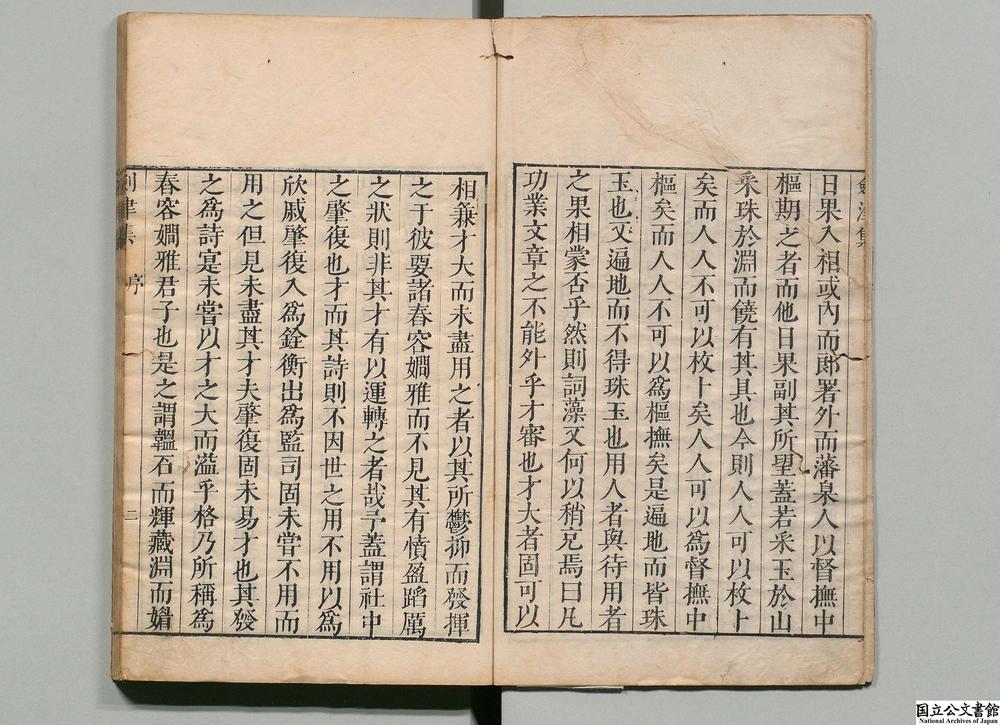 日果入相或內而郎署外而藩臬入以督撫中
樞期之者而他日果副其所望蓋若采玉於山
采珠於淵而饒有其具也今則人人可以枚卜
矣而人人不可以枚卜矣人人可以為督撫中
樞矣而人人不可以為樞撫矣是遍地而皆珠
玉也又遍地而不得珠玉也用人者與待用者
之果相蒙否乎然則詞藻又何以稍克焉曰凡
功業文章之不能外乎才審也才大者固可以
相兼才大而未盡用之者以其所鬱抑而發揮
之于彼要諸春容嫺雅而不見其有憤盈蹈厲
之狀則非其才有以運轉之者哉予蓋謂社中
之肇復也才而其詩則不因世之用不用以為
欣戚肇復入為銓衡出為監司固未嘗不用而
用之但見未盡其才夫肇復固未易才也其發
之為詩寔未嘗以才之大而溢乎格乃所稱為
春容嫺雅君子也是之謂韞石而輝藏淵而媚
集 序
二
国立公文書館
National Archives of Japan